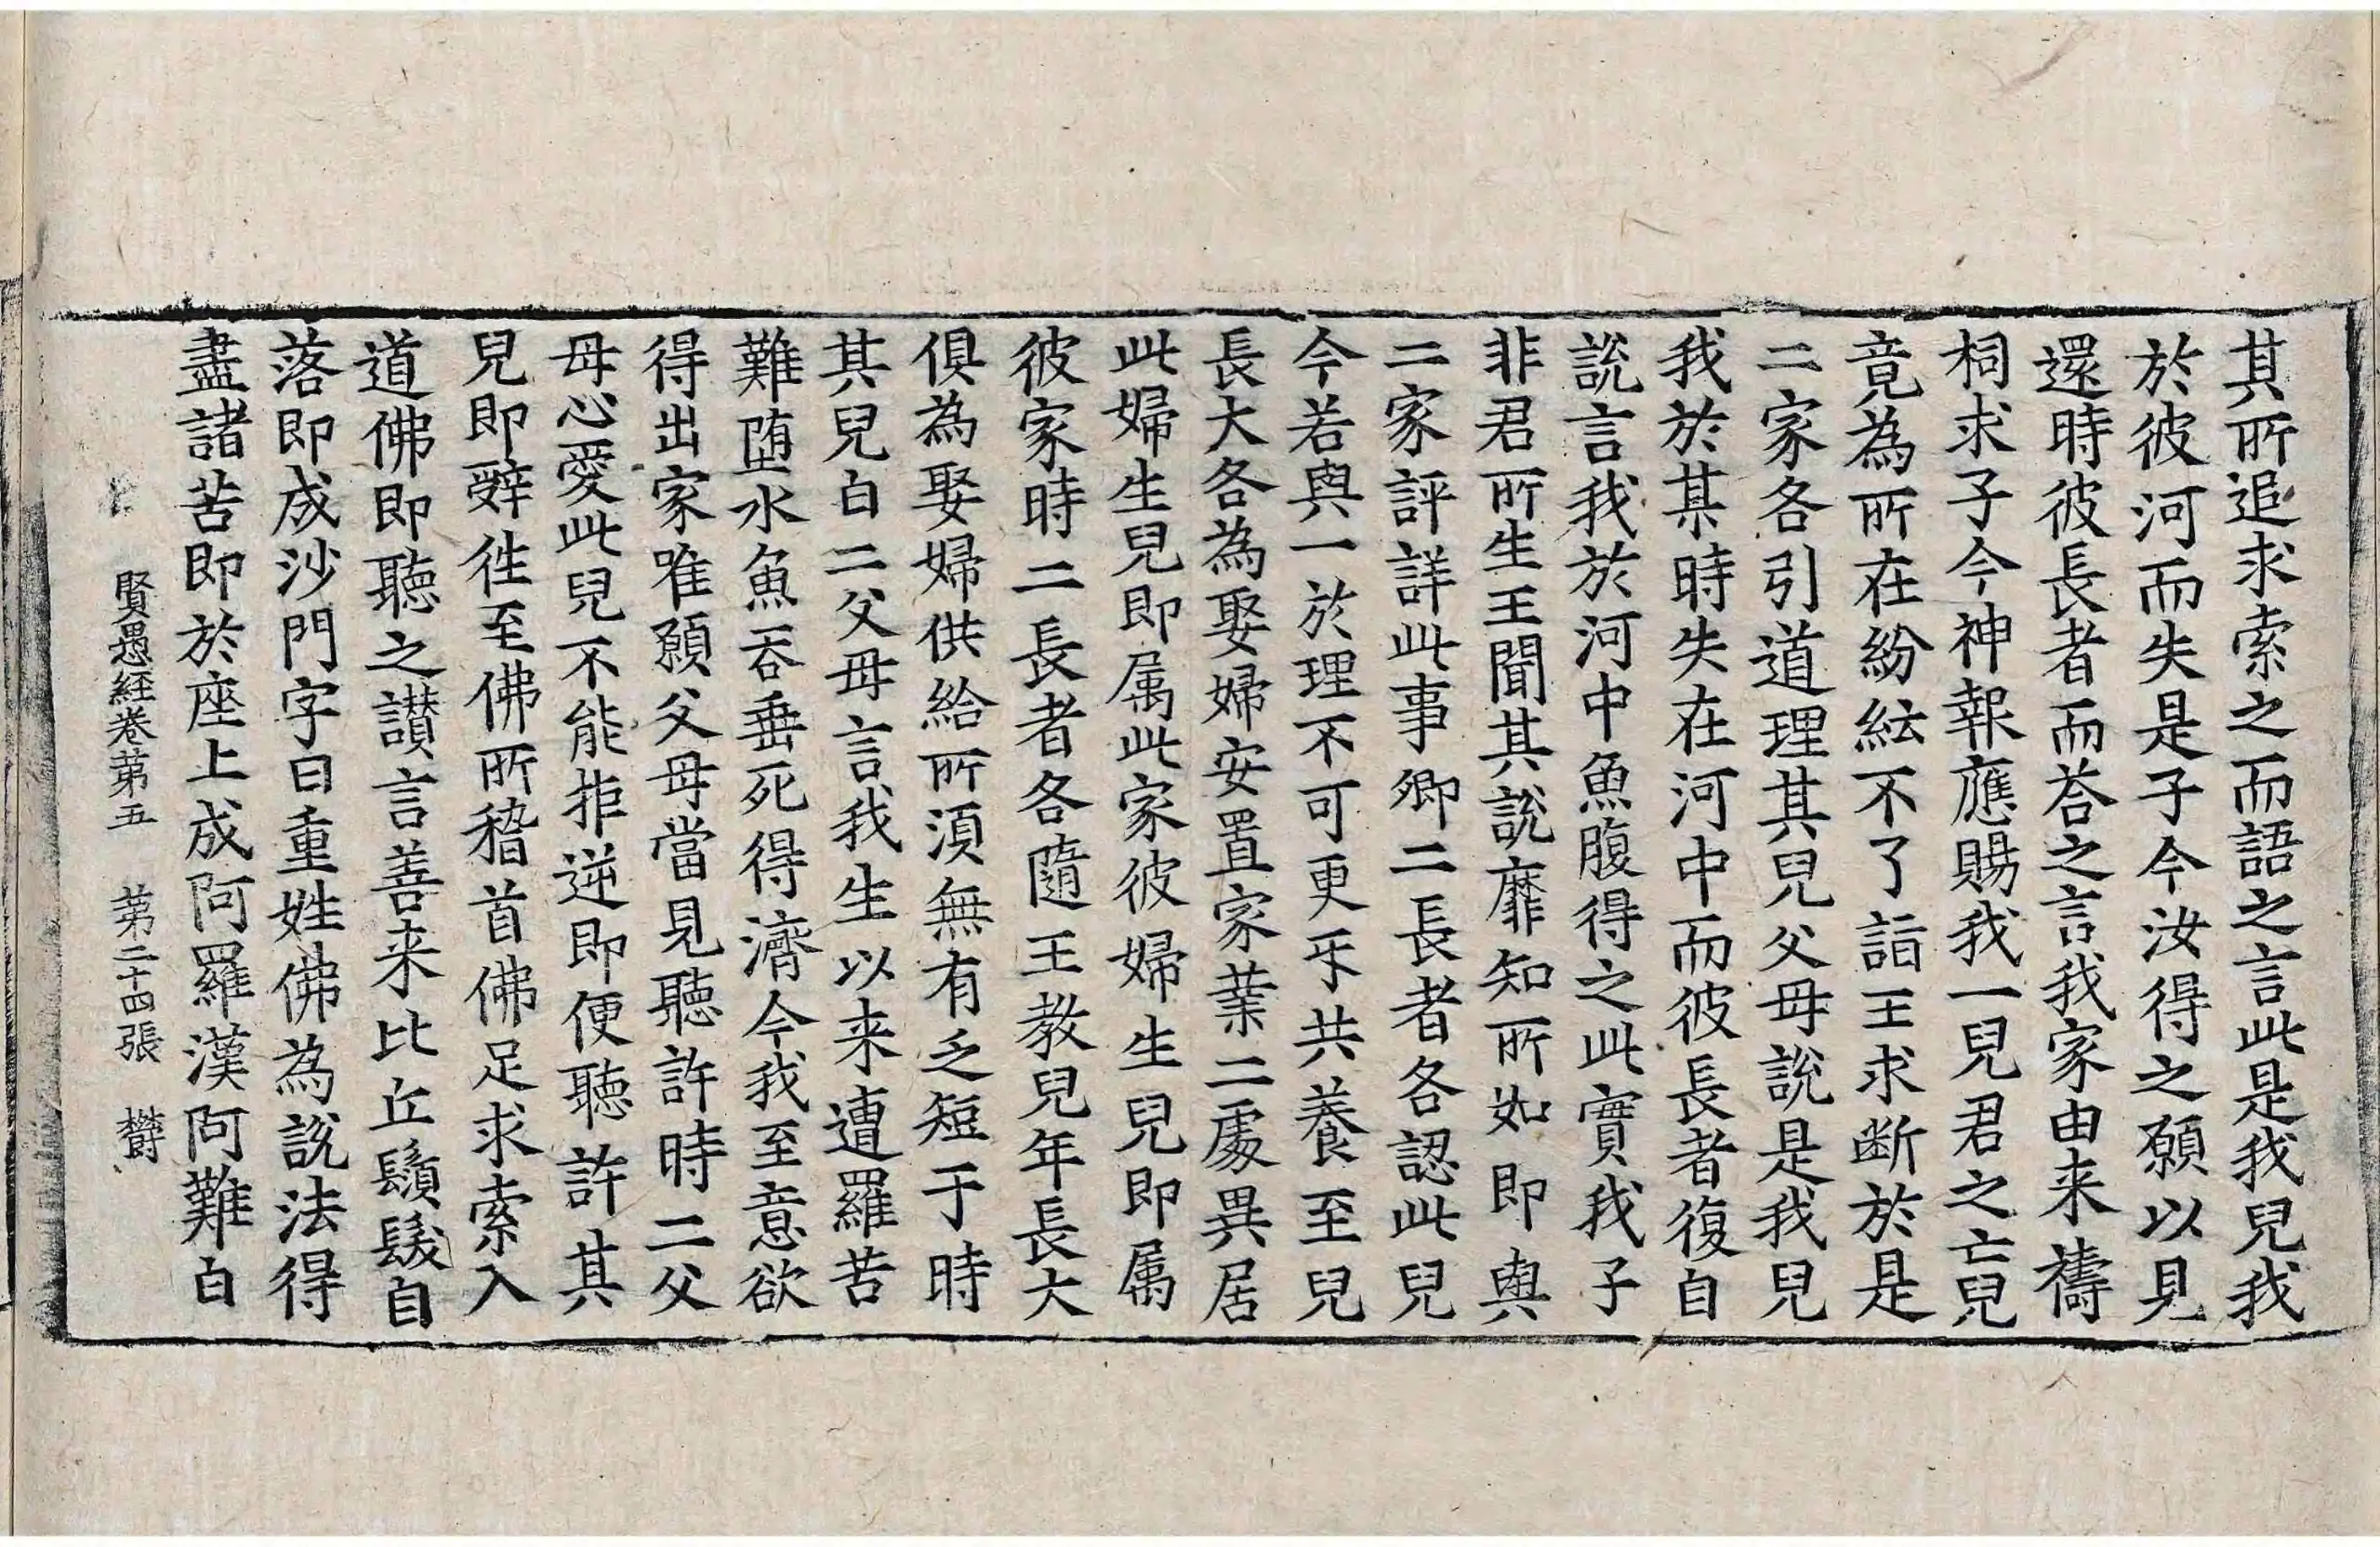 其所追求索之而語之言此是我兒我
於彼河而失是子今汝得之願以見
還時彼長者而荅之言我家由来禱
祠求子今神報應賜我一兒君之亡兒
竟為所在紛紜不了詣王求断於是
二家各引道理其兒父母說是我兒
我於某時失在河中而彼長者復自
說言我於河中魚腹得之此實我子
非君所生王聞其說靡知所如即與
二家評詳此事卿二長者各認此兒
今若與一於理不可更㸦共養至兒
長大各為娶婦安置家業二處異居
此婦生兒即属此家彼婦生兒即属
彼家時二長者各隨王教兒年長大
俱為娶婦供給所須無有乏短于時
其兒白二父母言我生以来遭羅苦
難墮水魚吞垂死得濟今我至意欲
得出家唯願父母當見聽許時二父
母心愛此兒不能拒逆即便聽許其
兒即辝徃至佛所稽首佛足求索入
道佛即聽之讃言善来比丘鬚髮自
落即成沙門字曰重姓佛為說法得
盡諸苦即於座上成阿羅漢阿難白
賢愚經卷第五 第二十四張 欝